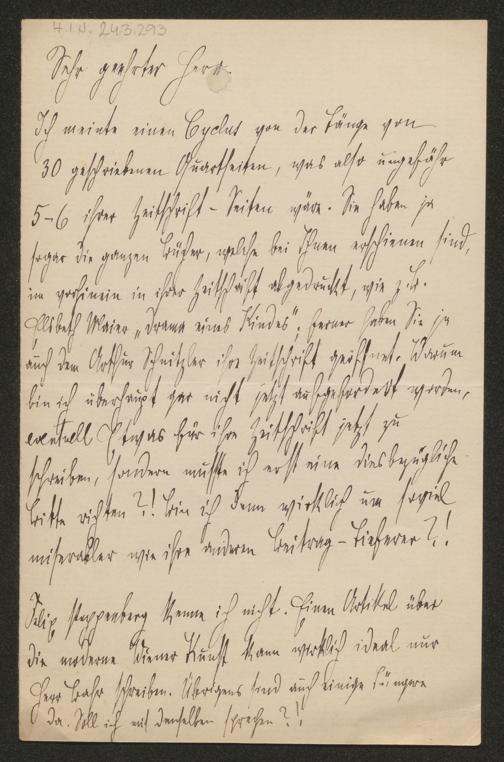 H.I.N. 243.293
Sehr geehrter Herr.
Ich meinte einen Cyclus von der Länge von
30 geschriebenen Quartseiten, was also ungefähr
5–6 ihrer Zeitschrift-Seiten wäre. Sie haben ja
sogar die ganzen Bücher, welche bei Ihnen erschienen sind,
im vorhinein in ihrer Zeitschrift abgedruckt, wie z.B.
Elsbeth Maier „Drama eines Kindes", ferner haben Sie ja
auch dem Arthur Schnitzler ihre Zeitschrift geöffnet. Warum
bin ich überhaupt gar nicht jetzt aufgefordert worden,
eventuell Etwas für ihre Zeitschrift jetzt zu
schreiben, sondern musste ich erst eine diesbezügliche
Bitte richten?! Bin ich denn wirklich um soviel
miserabler wie ihre anderen Beitrag-Lieferer?!
Felix kenne ich nicht. Einen Artikel über
die moderne Wiener Kunst kann wirklich ideal nur
Herr Bahr schreiben. Übrigens sind auch einige Jüngere
da. Soll ich mit denselben sprechen?!